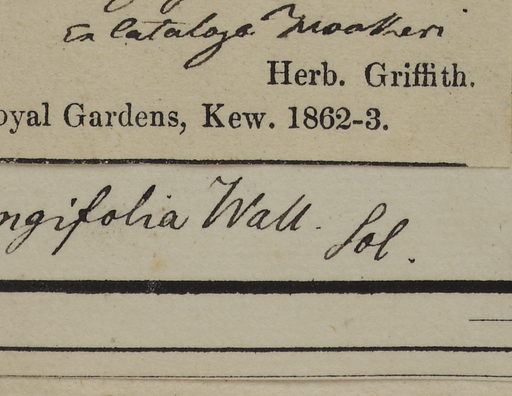 Ex Catalogo Hookeri
Herb. Griffith.
oyal Gardens, Kew. 1862-3.
ngifolia Wall. Sol.